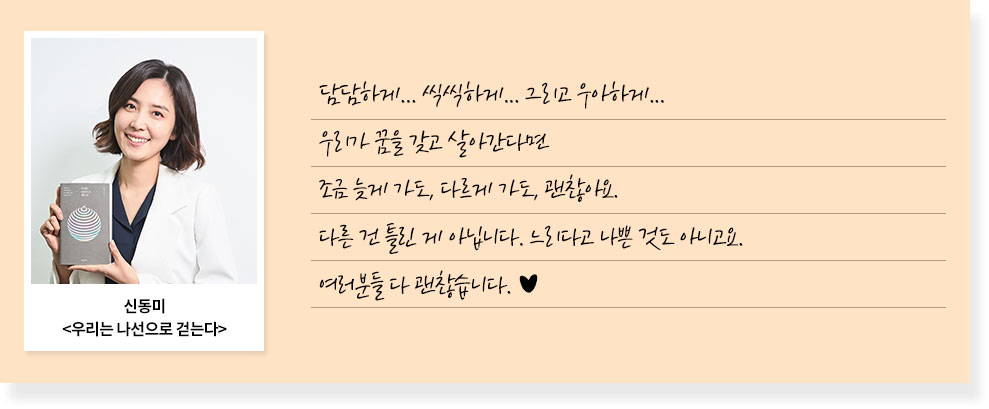 담담하게... 씩씩하게... 그리고 우아하게...
우리가 꿈을 갖고 살아간다면
조금 늦게 가도, 다르게 가도, 괜찮아요.
다른 건 틀린 게 아닙니다. 느리다고 나쁜 것도 아니고요.
여러분들 다 괜찮습니다. ♥
신동미
<우리는 나선으로 걷는다>